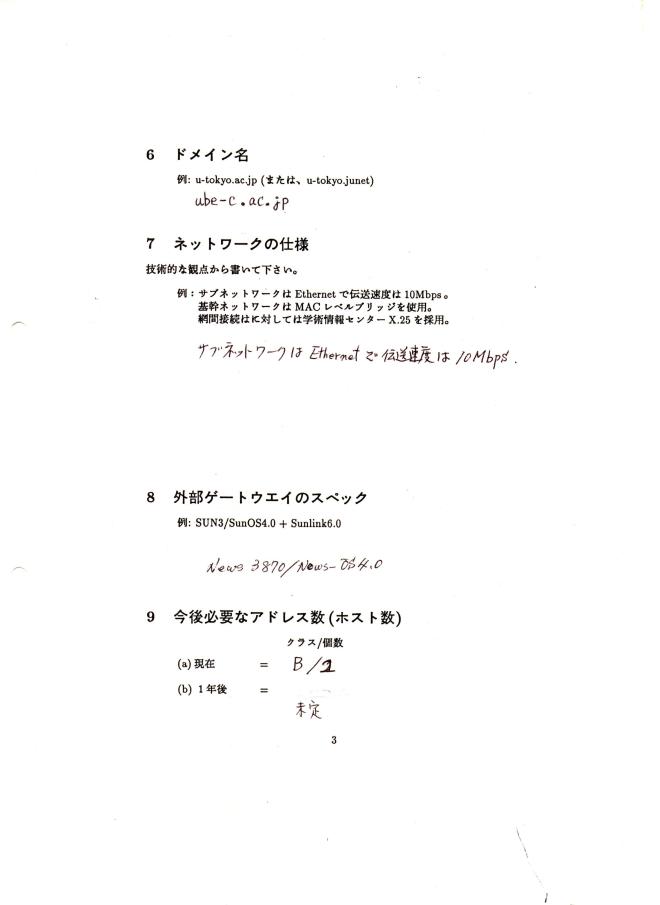 6 ドメイン名
例: u-tokyo.ac.jp (または、u-tokyo.junet)
ube-c.ac.jp
7 ネットワークの仕様
技術的な観点から書いて下さい。
例：サブネットワークは Ethernet で伝送速度は 10Mbps。
基幹ネットワークは MAC レベルブリッジを使用。
網間接続はに対しては学術情報センター X.25 を採用。
サブネットワークは Ethernet で伝送速度は 10Mbps.
8 外部ゲートウエイのスペック
例: SUN3/SunOS4.0 + Sunlink6.0
News 3870/News-OS4.0
9 今後必要なアドレス数 (ホスト数)
クラス/個数
(a) 現在 = B/1
(b) 1 年後 =
未定
3